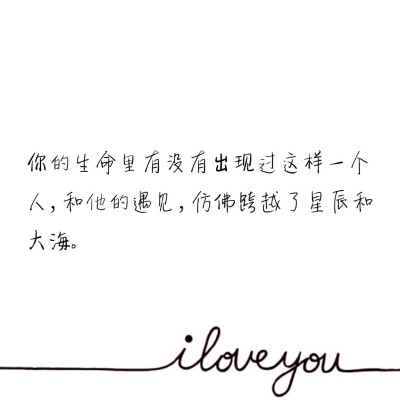 你的生命里有没有出现过这样一个
人,和他的遇见,仿佛跨越了星辰和
大海。
iloveyou